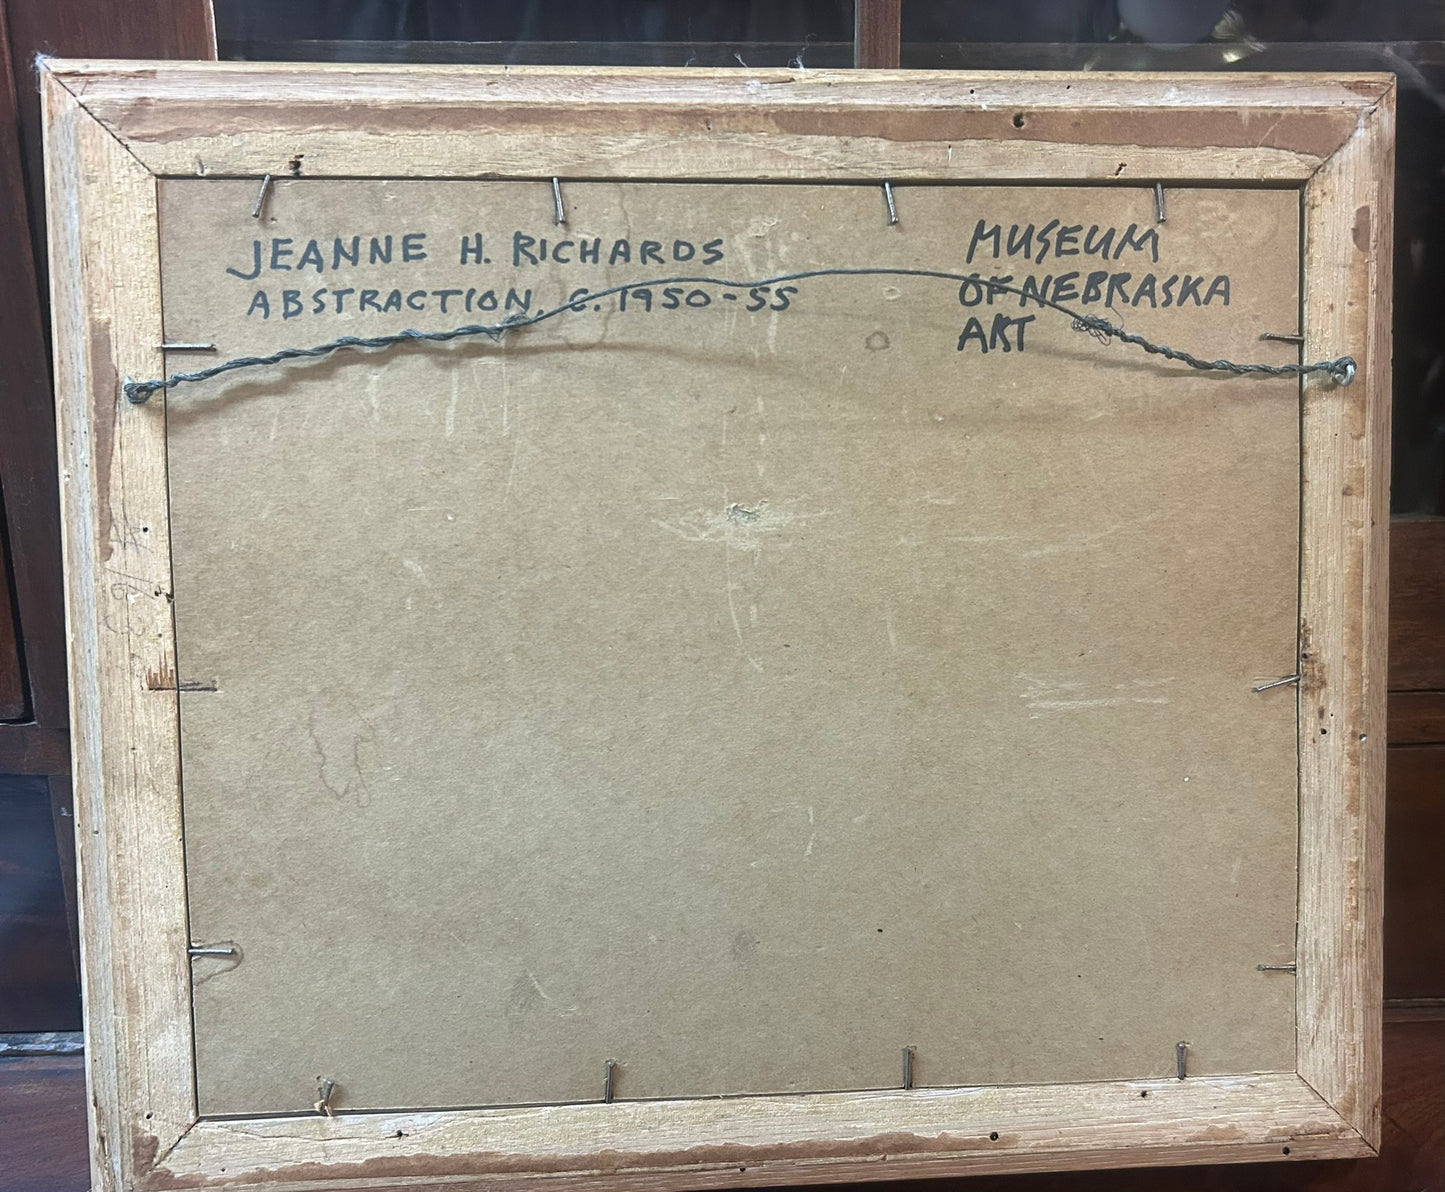 JEANNE H. RICHARDS
ABSTRACTION, C. 1950-55
MUSEUM
OF NEBRASKA
ART